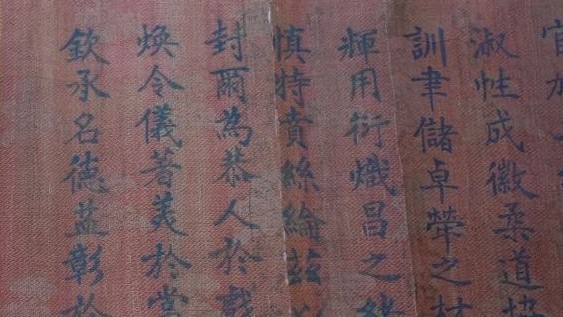 官
淑性成徽柔道協
訓聿儲卓犖之材
輝用衍熾昌之緒
慎特賁絲綸茲
封爾為恭人於戲
煥令儀著美於當
欽承名德益彰於